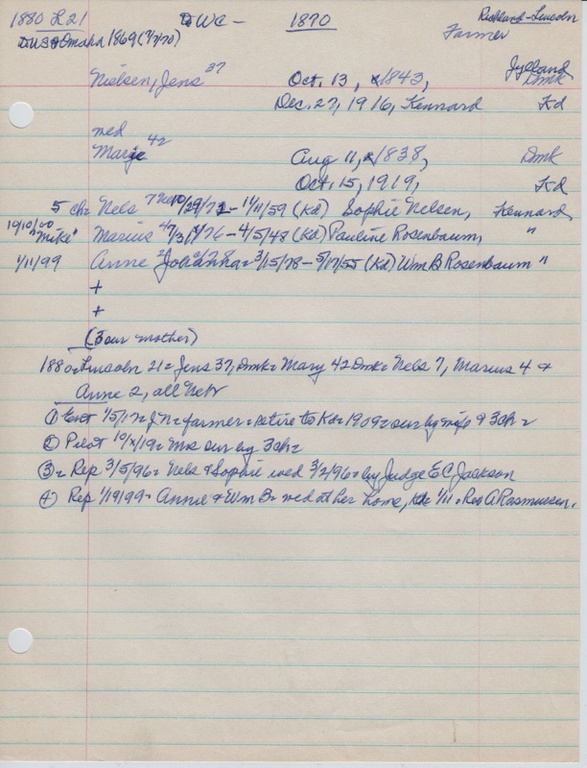 1880 L21 WC - 1870 Richland-Lincoln
US Omaha 1869 (7/70) Farmer
Nielsen, Jens 37 Oct. 13, 1843, Jylland Dmk
Dec. 27, 1916, Kennard Kd
med
Marie 42 Aug 11, 1838, Dmk
Oct. 15, 1919, Kd
5 ch = Nels 7 10/29/72 - 11/11/59 (Kd) Sophie Nelsen, Kennard
10/10/00 "Mike" Marius 4 - 4/5/48 (Kd) Pauline Rosenbaum, "
1/11/99 Anne 2 3/15/78 - 5/17/55 (Kd) Wm B Rosenbaum "
+
+
(3 our mother)
1880 = Lincoln 21 = Jens 37, Dmk = Mary 42 Dmk = Nels 7, Marius 4 +
Anne 2, all Nebr
① Ent 1/5/17 = JN = farmer = retire to Kd = 1909 = sur by wife + 3 ch =
② Pilot = Mrs sur by 3 ch =
③ = Rep 3/5/96 = Nels + Sophie wed 3/2/96 = by Judge E C Jackson
④ Rep 1/19/99 = Annie + Wm B = wed at her home, Kd 1/11 = Rev A Rasmussen.